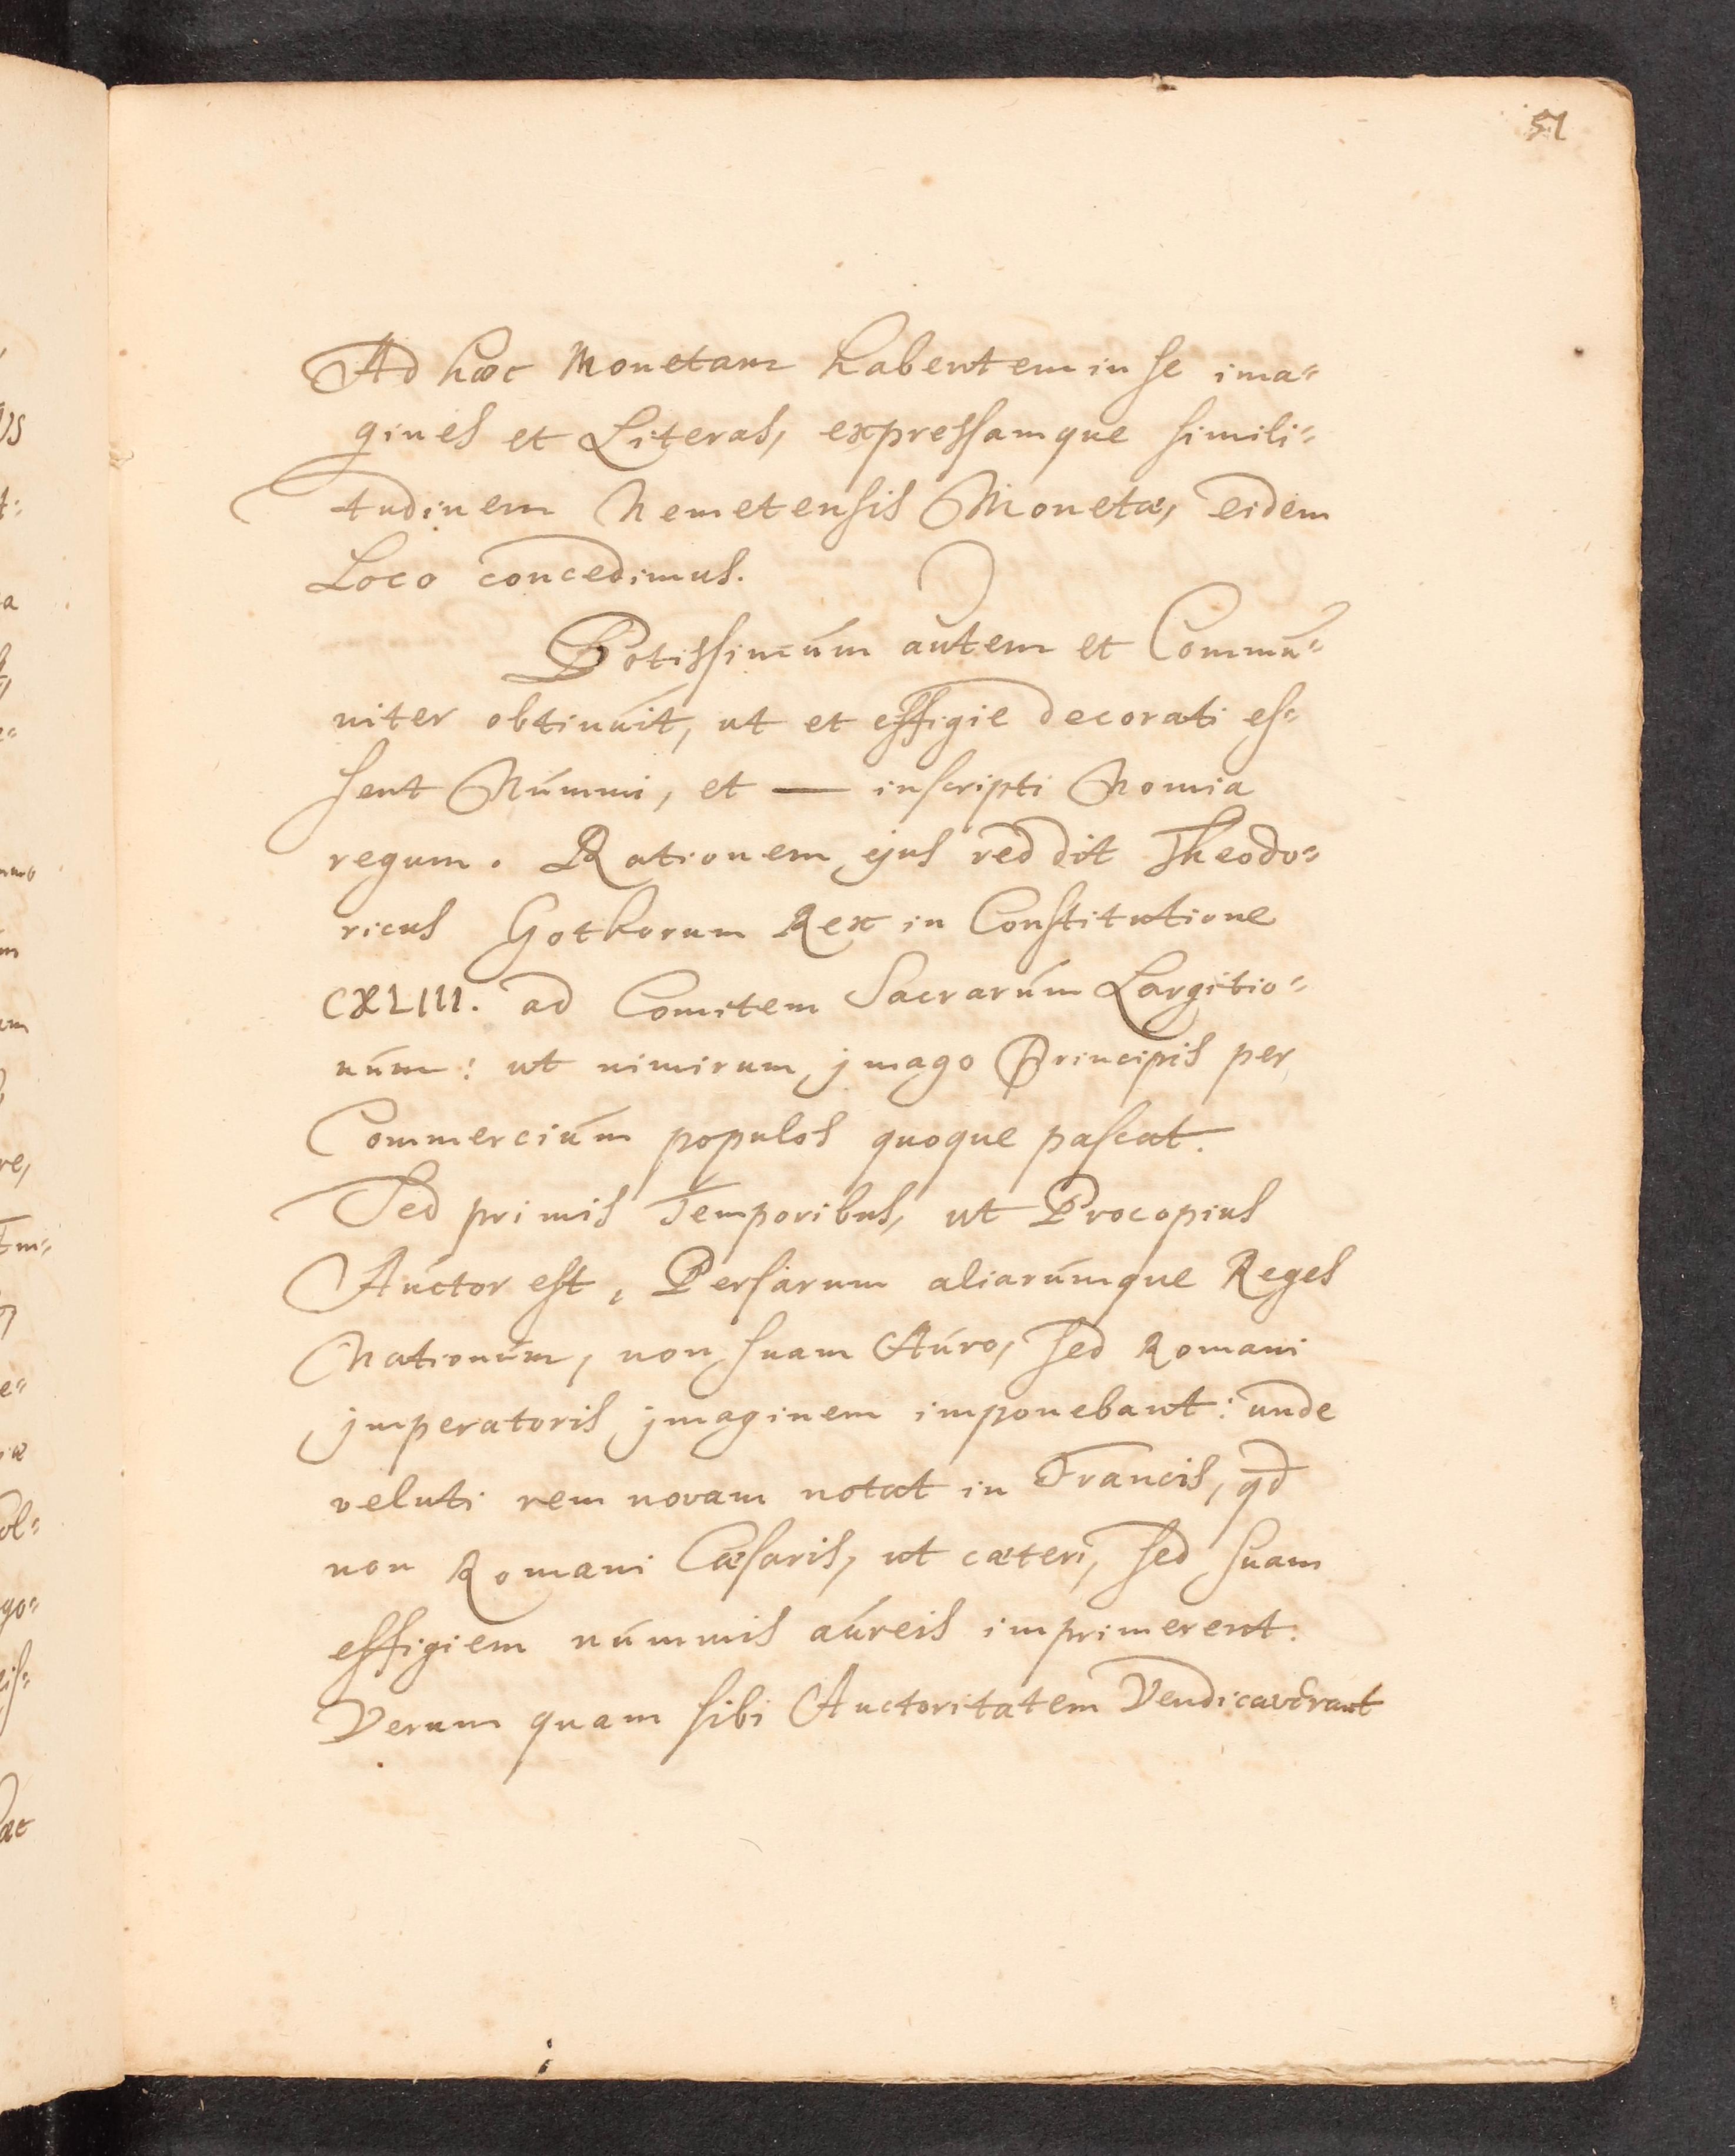 51
Ad hæc Monetam habentem in se ima=
gines et Literas, expressamque simili=
tudinem Nemetensis Monetæ, eidem
Loco concedimus.
Potissimum autem et Commu=
niter obtinuit, ut et effigie decorati es=
sent Nummi, et — inscripti Nomia
regum. Rationem ejus reddit Theodo=
ricus Gothorum Rex in Constitutione
CXLIII. ad Comitem Sacrarum Largitio=
num: ut nimirum jmago Principis per
Commercium populos quoque pascat.
Sed primis Temporibus, ut Procopius
Auctor est, Persarum aliarumque Reges
Nationum, non suam Auro, sed Romani
jmperatoris jmaginem imponebant: unde
veluti rem novam notat in Francis, qd
non Romani Cæsaris, ut cæteri, sed suam
effigiem nummis aureis imprimerent.
Verum quam sibi Auctoritatem Vendicaverant